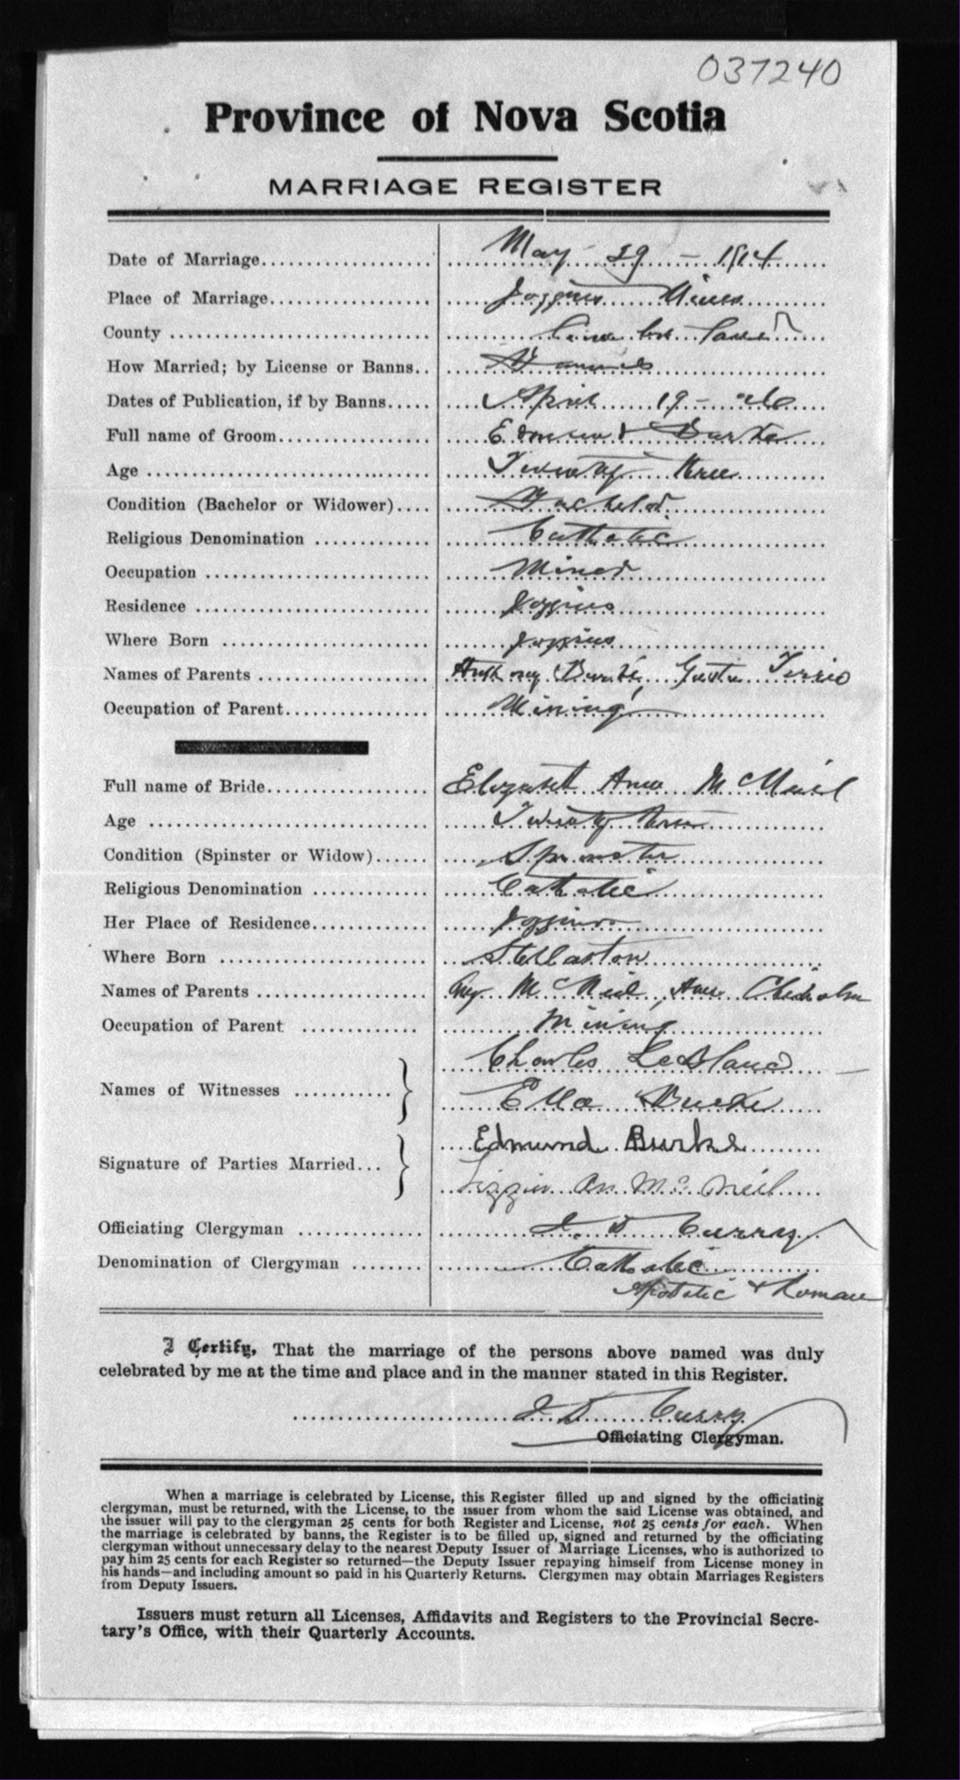 037240
Province of Nova Scotia
MARRIAGE REGISTER
Date of Marriage.................... May - 29 - 1914
Place of Marriage.................... Joggins Mines
County ............................ Cumberland
How Married; by License or Banns.. Banns
Dates of Publication, if by Banns..... April 19 - 26
Full name of Groom.................. Edmund Burke
Age ............................... Twenty three
Condition (Bachelor or Widower).... Bachelor
Religious Denomination ............. Catholic
Occupation ......................... Miner
Residence .......................... Joggins
Where Born ....................... Joggins
Names of Parents .................. Anthony Burke, Terrio
Occupation of Parent................ Mining
Full name of Bride.................. Elizabeth Ann McNeil
Age ............................... Twenty three
Condition (Spinster or Widow)...... Spinster
Religious Denomination ............. Catholic
Her Place of Residence.............. Joggins
Where Born ....................... Stellarton
Names of Parents .................. McNeil, Ann Chisholm
Occupation of Parent .............. Mining
Names of Witnesses ........... } Charles LeBlanc
Ella Burke
Signature of Parties Married... } Edmund Burke
Lizzie An McNeil
Officiating Clergyman .............. J. D Curry
Denomination of Clergyman ........ Catholic
Apostolic & Roman
I Certify, That the marriage of the persons above named was duly
celebrated by me at the time and place and in the manner stated in this Register.
J. D Curry
Officiating Clergyman.
When a marriage is celebrated by License, this Register filled up and signed by the officiating
clergyman, must be returned, with the License, to the issuer from whom the said License was obtained, and
the issuer will pay to the clergyman 25 cents for both Register and License, not 25 cents for each. When
the marriage is celebrated by banns, the Register is to be filled up, signed and returned by the officiating
clergyman without unnecessary delay to the nearest Deputy Issuer of Marriage Licenses, who is authorized to
pay him 25 cents for each Register so returned—the Deputy Issuer repaying himself from License money in
his hands—and including amount so paid in his Quarterly Returns. Clergymen may obtain Marriages Registers
from Deputy Issuers.
Issuers must return all Licenses, Affidavits and Registers to the Provincial Secre-
tary's Office, with their Quarterly Accounts.